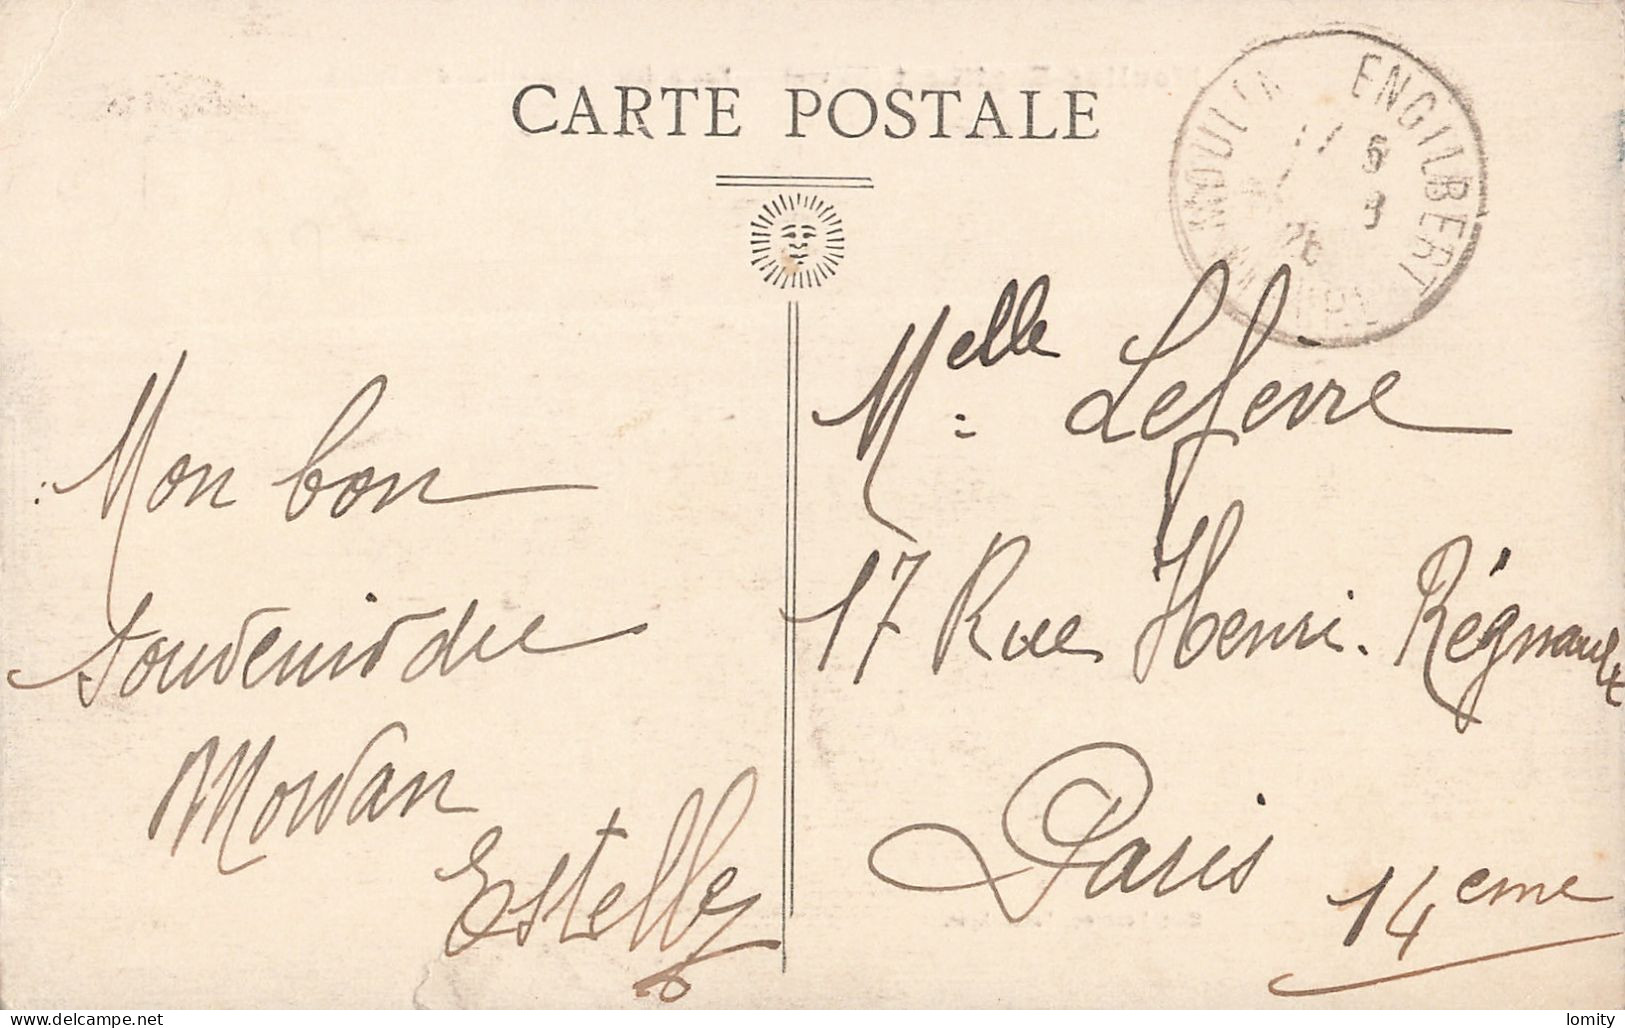 CARTE POSTALE
MOULIN ENGILBERT
Mon bon
souvenir du
Morvan
Estelle
Melle Lefèvre
17 Rue Henri. Régnault
Paris
14eme
www.delcampe.net
lomity